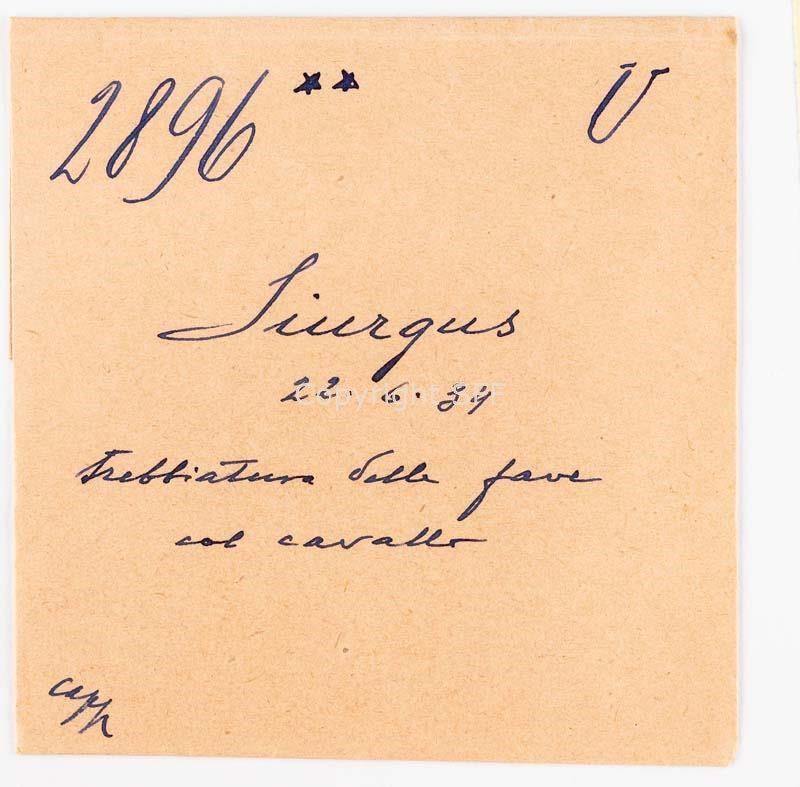 2896 ** U
Siurgus
22.6.39
trebbiatura delle fave
col cavallo
capp
Copyright BFF